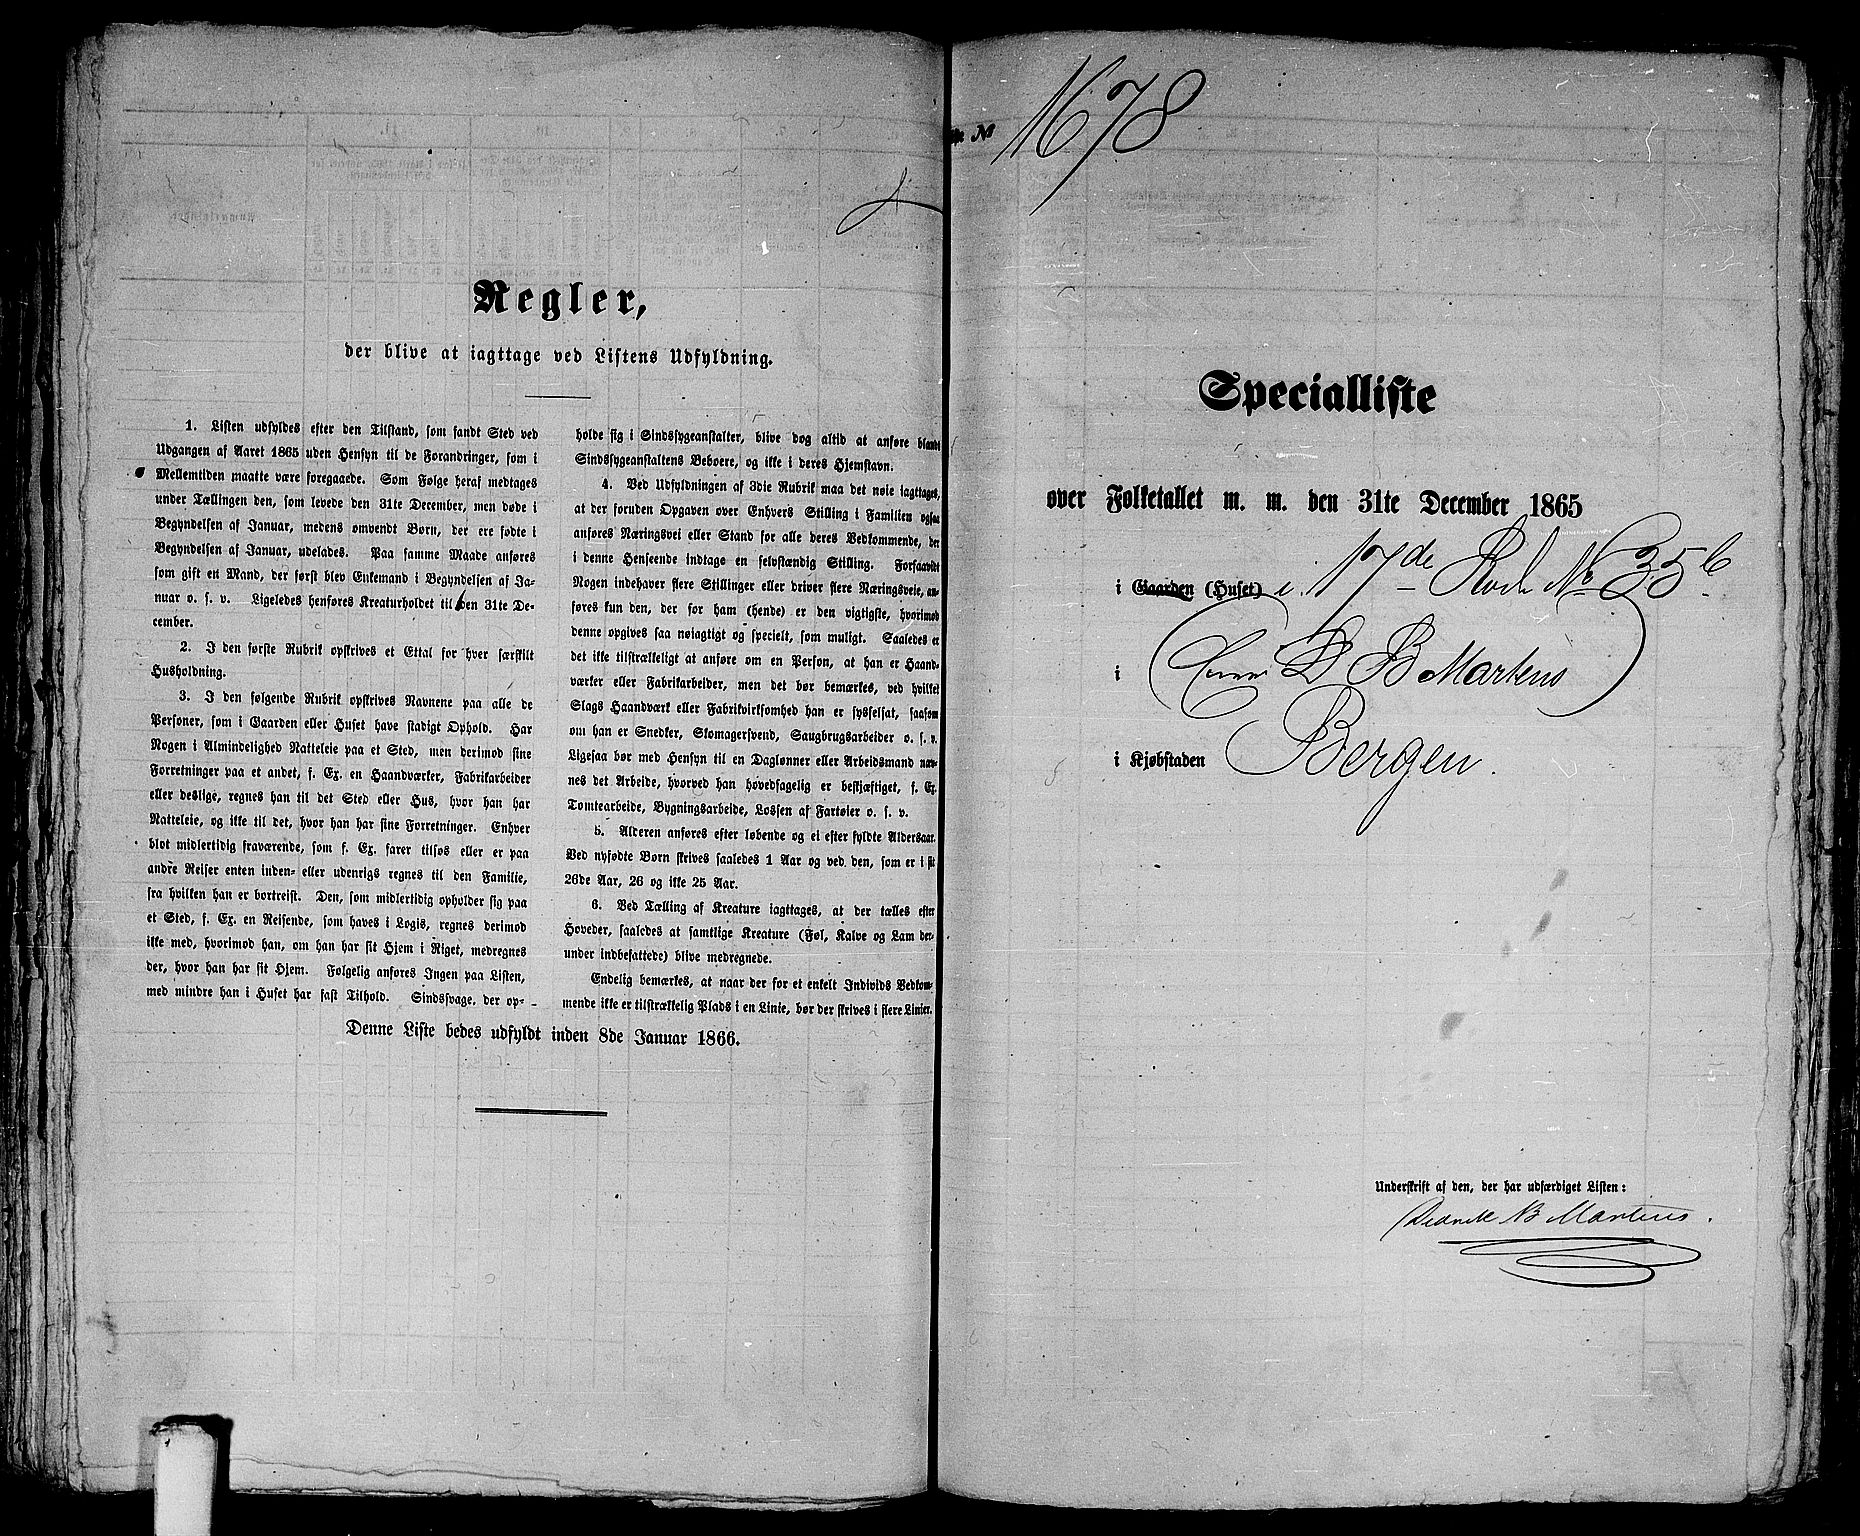 Regler,
der blive at iagttage ved Listens Udfyldning.
1. Listen udfyldes efter den Tilstand, som fandt Sted ved
Udgangen af Aaret 1865 uden Hensyn til de Forandringer, som i
Mellemtiden maatte være foregaaede. Som Følge heraf medtages
under Tællingen den, som levede den 31te December, men døde i
Begyndelsen af Januar, medens omvendt Børn, der ere fødte i
Begyndelsen af Januar, udelades. Paa samme Maade anføres
som gift en Mand, der først blev Enkemand i Begyndelsen af Ja-
nuar o. s. v. Ligeledes henføres Kreaturholdet til den 31te De-
cember.
2. I den første Rubrik opskrives et Ettal for hver særskilt
Husholdning.
3. I den følgende Rubrik opskrives Navnene paa alle de
Personer, som i Gaarden eller Huset have stadigt Ophold. Har
Nogen i Almindelighed Natteleie paa et Sted, men derimod sine
Forretninger paa et andet, f. Ex. en Haandværker, Fabrikarbeider
eller deslige, regnes han til det Sted eller Hus, hvor han har
Natteleie, og ikke til det, hvor han har sine Forretninger. Enhver
blot midlertidig fraværende, som f. Ex. farer tilsøs eller er paa
andre Reiser enten inden- eller udenrigs regnes til den Familie,
fra hvilken han er bortreist. Den, som midlertidig opholder sig paa
et Sted, f. Ex. en Reisende, som haves i Logis, regnes derimod
ikke med, hvorimod han, om han har sit Hjem i Riget, medregnes
der, hvor han har sit Hjem. Følgelig anføres Ingen paa Listen,
med mindre han i Huset har fast Tilhold. Sindssvage, der op-
holde sig i Sindssygeanstalter, blive dog altid at anføre blandt
Sindssygeanstaltens Beboere, og ikke i deres Hjemstavn.
4. Ved Udfyldningen af 3die Rubrik maa det nøie iagttages,
at der foruden Opgaven over Enhvers Stilling i Familien ogsaa
anføres Næringsvei eller Stand for alle deres Vedkommende, der
i denne Henseende indtage en selvstændig Stilling. Forsaavidt
Nogen indehaver flere Stillinger eller driver flere Næringsveie, an-
føres kun den, der for ham (hende) er den vigtigste, hvorimod
denne opgives saa nøiagtigt og specielt, som muligt. Saaledes er
det ikke tilstrækkeligt at anføre om en Person, at han er Haand-
værker eller Fabrikarbeider, men det bør bemærkes, ved hvilket
Slags Haandværk eller Fabrikvirksomhed han er sysselsat, saasom
om han er Snedker, Skomagersvend, Saugbrugsarbeider o. s. v.
Ligesaa bør med Hensyn til en Daglønner eller Arbeidsmand næv-
nes det Arbeide, hvorved han hovedsagelig er beskjæftiget, f. Ex.
Tomtearbeide, Bygningsarbeide, Lossen af Fartøier o. s. v.
5. Alderen anføres efter løbende og ei efter fyldte Aldersaar.
Ved nyfødte Børn skrives saaledes 1 Aar og ved den, som er i sit
26de Aar, 26 og ikke 25 Aar.
6. Ved Tælling af Kreature iagttages, at der tælles efter
Hoveder, saaledes at samtlige Kreature (Føl, Kalve og Lam der-
under indbefattede) blive medregnede.
Endelig bemærkes, at naar der for et enkelt Individs Vedkom-
mende ikke er tilstrækkelig Plads i en Linie, bør der skrives i flere Linier.
Denne Liste bedes udfyldt inden 8de Januar 1866.
№ 1678
Specialliste
over Folketallet m. m. den 31te December 1865
i Gaarden (Huset) i 17de Rode No 35b.
i D B Martens
i Kjøbstaden Bergen.
Underskrift af den, der har udfærdiget Listen:
Didrik B Martens.